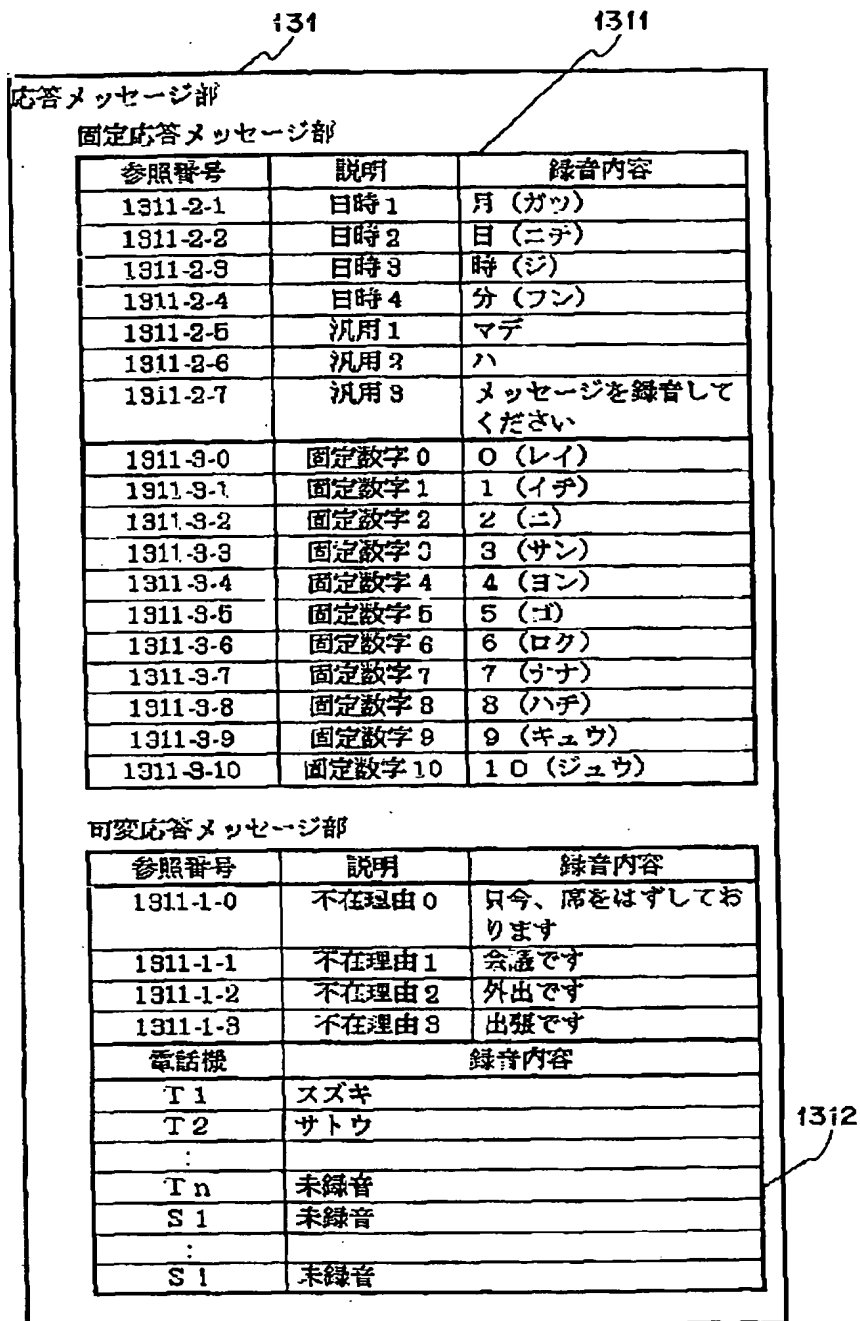 131 1311
応答メッセージ部
固定応答メッセージ部
参照番号 説明 録音内容
1311-2-1 日時1 月(ガツ)
1311-2-2 日時2 日(ニチ)
1311-2-3 日時3 時(ジ)
1311-2-4 日時4 分(フン)
1311-2-5 汎用1 マデ
1311-2-6 汎用2 ハ
1311-2-7 汎用3 メッセージを録音して
ください
1311-3-0 固定数字0 0(レイ)
1311-3-1 固定数字1 1(イチ)
1311-3-2 固定数字2 2(ニ)
1311-3-3 固定数字3 3(サン)
1311-3-4 固定数字4 4(ヨン)
1311-3-5 固定数字5 5(ゴ)
1311-3-6 固定数字6 6(ロク)
1311-3-7 固定数字7 7(ナナ)
1311-3-8 固定数字8 8(ハチ)
1311-3-9 固定数字9 9(キュウ)
1311-3-10 固定数字10 10(ジュウ)
可変応答メッセージ部
参照番号 説明 録音内容
1311-1-0 不在理由0 只今、席をはずしてお
ります
1311-1-1 不在理由1 会議です
1311-1-2 不在理由2 外出です
1311-1-3 不在理由3 出張です
電話機 録音内容
T1 スズキ
T2 サトウ
:
Tn 未録音
S1 未録音
:
S1 未録音
1312